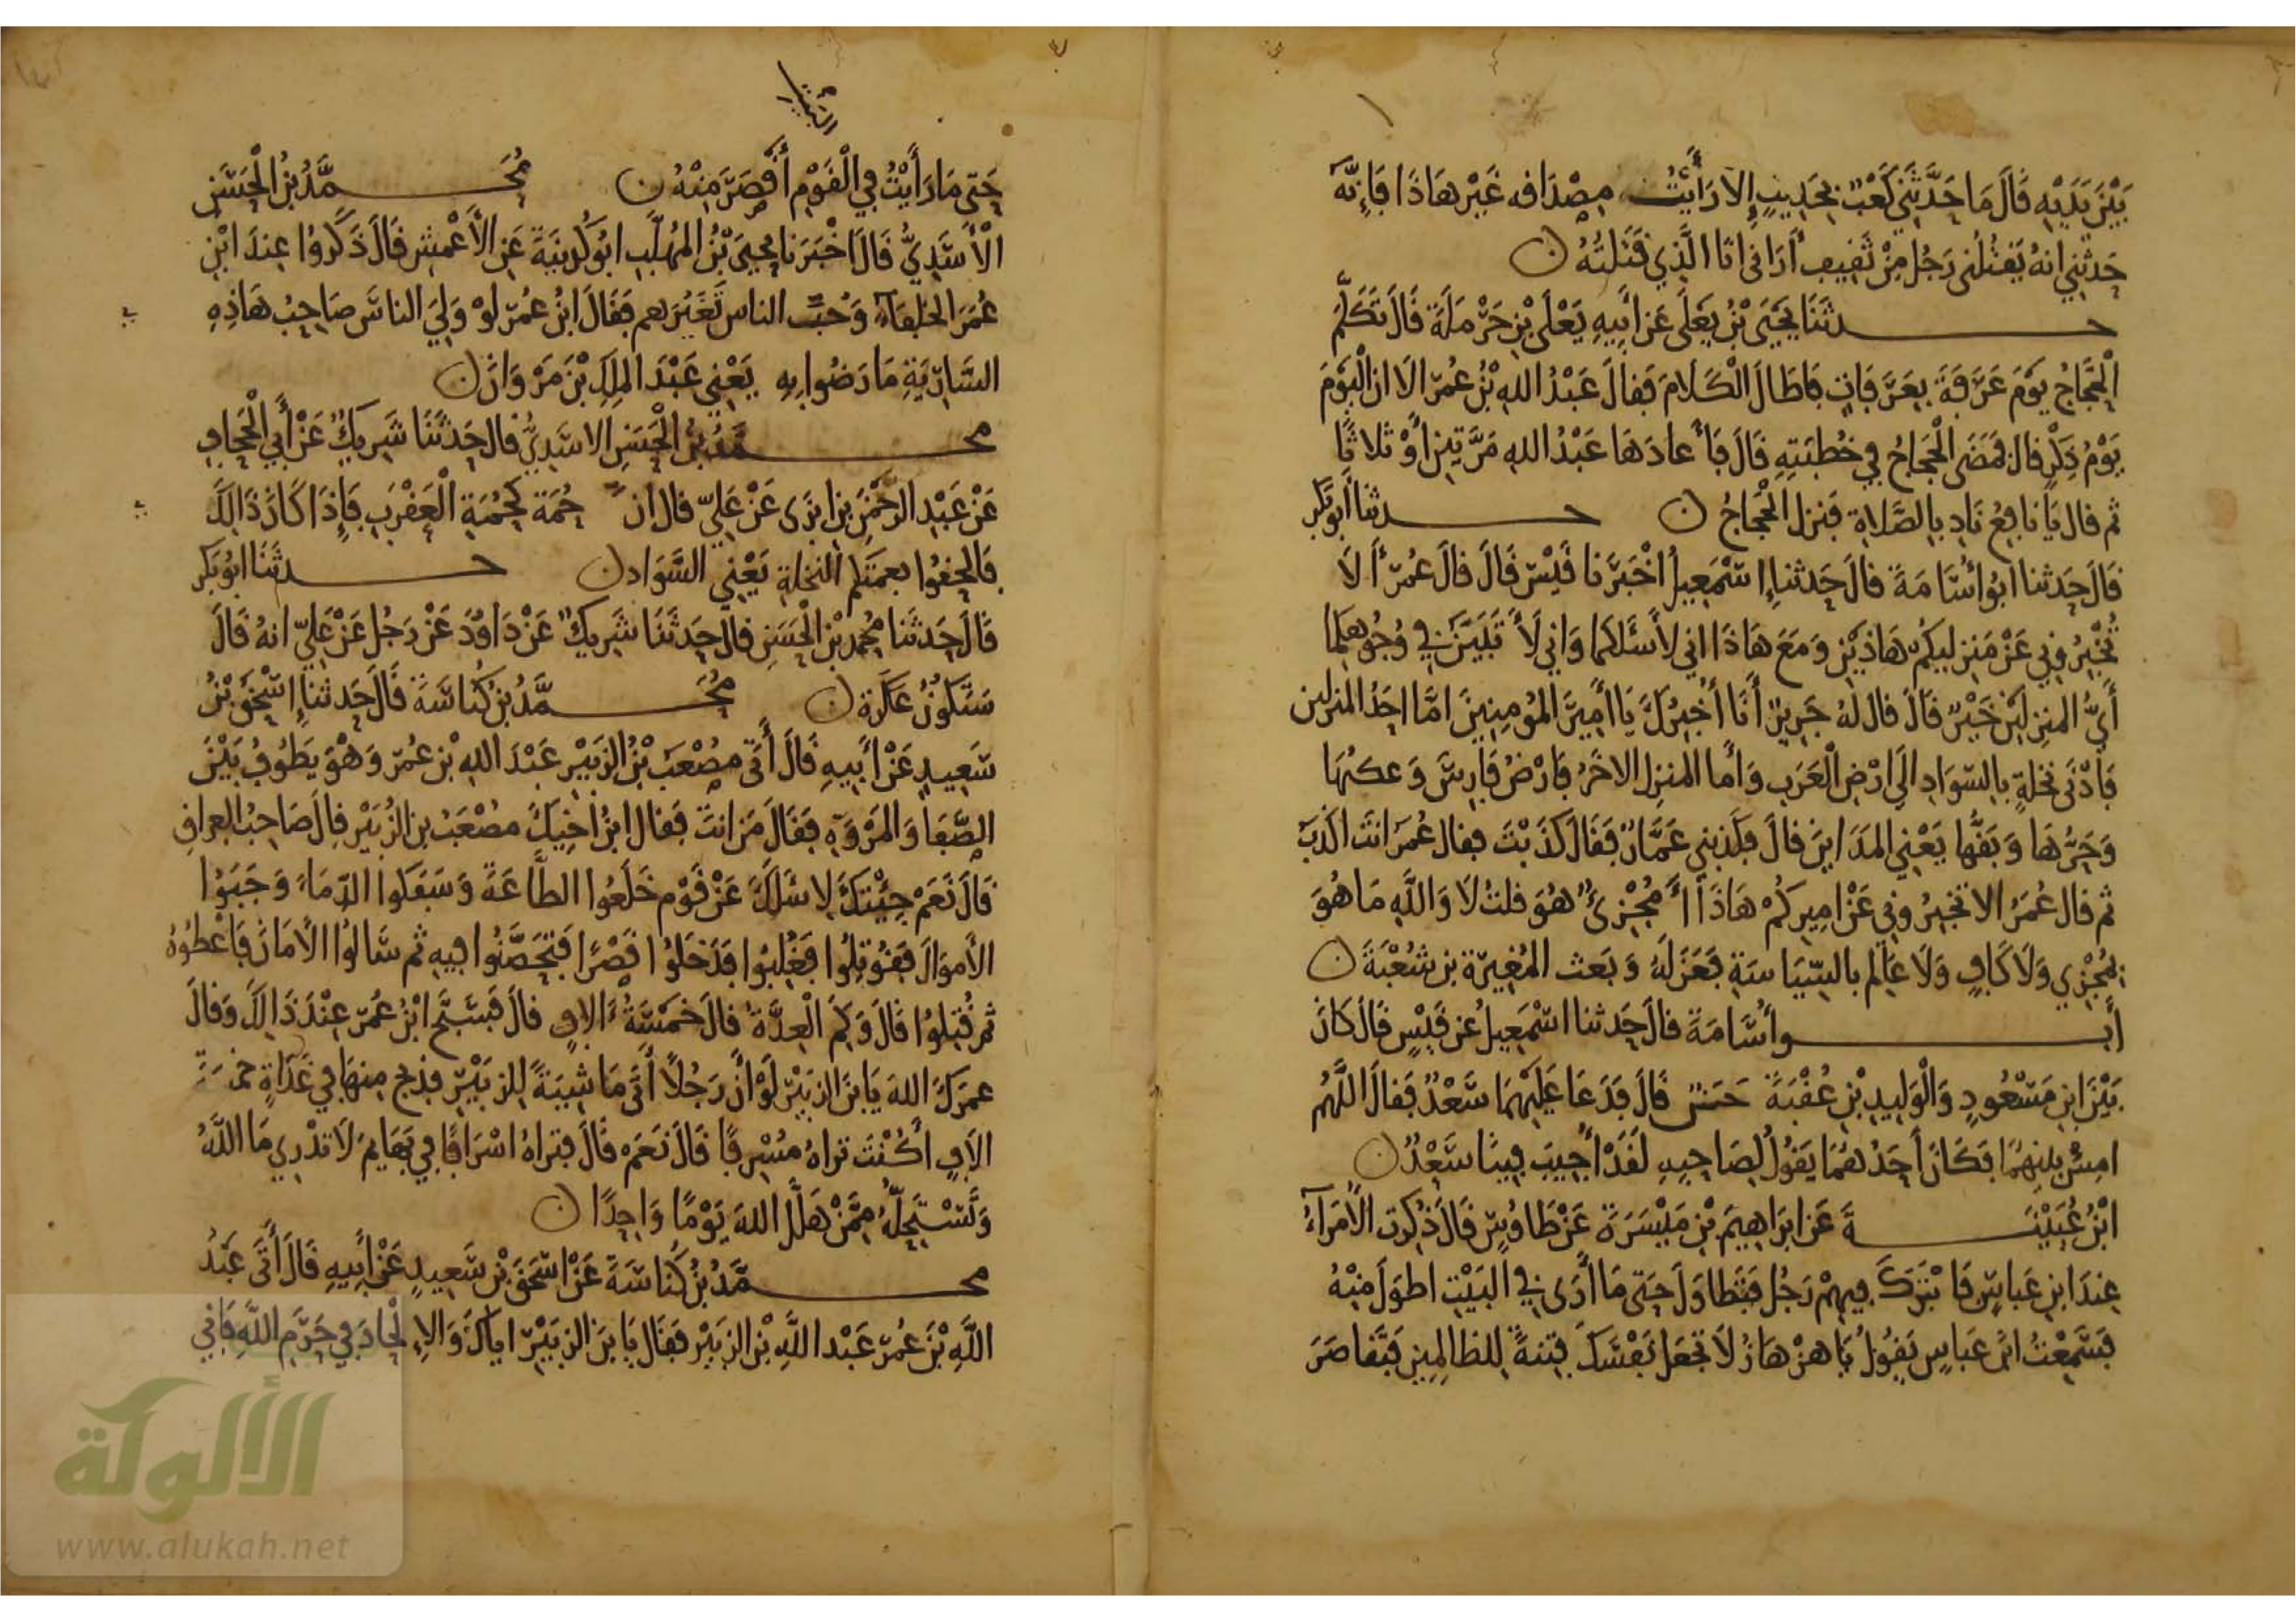 بَيْنَ يَدَيْهِ قَالَ مَا حَدَّثَنِي كَعْبٌ بِحَدِيثٍ إِلا رَأَيْتُ مِصْدَاقه غَيْرَ هَاذَا فَإِنَّهُ
حَدثَنِي انهُ يَقْتُلُنِي رَجُل مِنْ ثَقِيف أُرَانِي انَا الَّذِي قَتَلتُهُ ن
حدثَنَا يَحْيَى بْنُ يَعْلَى عَن أَبِيهِ يَعْلَى بْنِ حَرْمَلَةَ قَالَ تَكَلَّمَ
الْحَجَّاجُ يَوْمَ عَرَفَةَ بِعَرَفَاتٍ فَاطَالَ الْكَلَامَ فَقالَ عَبْدُ اللهِ بْنُ عُمَرَ الَا ان الْيَوْمَ
يَوْمُ ذِكْرٍ قال فَمَضَى الْحَجاجُ فِي خُطْبَتِهِ قَالَ فَأَعادَهَا عَبْدُ اللهِ مَرَّتَيْنِ أَوْ ثَلاثًا
ثم قال يَا نَافِعُ نَادِ بِالصَّلاةِ فَنزل الْحَجاجُ ن حدثنا أَبُو بَكر
قَالَ حَدثنا ابُو أُسَامَةَ قالَ حَدثنا إِسْمَعِيلُ أَخْبَرَنا قَيْس قَالَ قالَ عُمَرُ أَلَا
تُخْبِرُونِي عَنْ مَنزِليكُم هَاذَيْن وَمَعَ هَاذَا انِي لأَسْئَلكما وَانِي لأَتَبَيَّن فِي وُجُوهكما
أَيُّ المنزِلَيْن خَيْرٌ قَالَ قال لهُ جَرِيرٌ أَنَا أُخْبِرُكَ يَا أَمِيرَ المُومِنِينَ امَّا احَدُ المنزلين
فَأَدْنَى نَخْلَةٍ بِالسّوَادِ الَى ارْضِ الْعَرَب وَأَما المنزِل الاخَرُ فَارْضُ فَارِسَ وَعكهَا
وَحَرُّهَا وَبَقُّها يَعْنِي المَدَاينَ قالَ فكذبَنِي عَمَّارٌ فَقَالَ كَذَبْتَ فقال عُمَرُ انتَ اكذَبُ
ثم قالَ عُمَرُ الا تخبِرُونِي عَنْ امِيرِكُمْ هَاذَا أَمُجْزِئٌ هُوَ قلتُ لَا وَاللَّهِ مَا هُوَ
بمُجْزِي وَلَا كَافٍ وَلَا عَالِم بالسّيَاسَةِ فَعَزَلَهُ وَبَعث المُغِيرَة بن شعْبَةَ ن
أَبو أُسَامَةَ قالَ حَدثنا اسْمَعِيلُ عَن قَيْسٍ قَالَ كانَ
بَيْنَ ابن مَسْعُودٍ وَالْوَلِيدِ بْنِ عُقْبَةَ حَسن قَالَ فَدَعَا عَلَيْهِمَا سَعْدٌ فَقالَ اللَّهُم
امِش بَينهمَا فَكَانَ أَحَدُهُمَا يَقُولُ لصَاحِبِهِ لَقَدْ أُجِيبَ فِينَا سَعْدٌ ن
ابْنُ عُيَيْنَةَ عَن ابرَاهِيمَ بْنِ مَيْسَرَةَ عَنْ طَاوُسٍ قَالَ ذُكِرَتِ الأُمَرَآءُ
عِندَ ابنِ عَباسٍ فَابْتَرَكَ فِيهِمْ رَجُل فَتَطَاوَلَ حَتى مَا أَرَى فِي البَيْتِ اطوَلَ مِنْهُ
فَسَمِعْتُ ابْنَ عَباسٍ يَقُولُ يَا هزهَازُ لَا تَجْعَل نَفْسَكَ فِتنةً لِلظالِمِين فَتَقاصَرَ
حَتى مَا رَأَيْتُ فِي الْقَوْمِ أَقْصَرَ مِنْهُ ن مُحَمَّدُ بْنُ الْحَسَنِ
الْأَسَدِيُّ قَالَ اخْبَرَنا يَحيَى بْنُ المُهلَّبِ ابُو كُدَيْنَةَ عَنِ الأَعْمش قَالَ ذَكَرُوا عِندَ ابْنِ
عُمَرَ الخلفَاءَ وَحُبَّ الناس تَغْيِيرَهم فَقَالَ ابنُ عُمَرَ لَوْ وَلِيَ الناسَ صَاحِبُ هَاذِهِ
السَّارِيَةِ مَا رَضُوا بِهِ يَعْنِي عَبْدَ المَلِكِ بْنَ مَرْوَانَ ن
محمَّدُ بْنُ الْحَسَنِ الاسَدِيُّ قال حَدثَنَا شَرِيكٌ عَنْ أَبِي الْحَجافِ
عَنْ عَبْدِ الرَّحْمَنِ بنِ ابزَى عَنْ عَلِيّ قال ان حُمَة كحُمَةِ الْعَقْرَبِ فَإِذَا كَانَ ذَالِكَ
فَالحقُوا بعمتكم النخلةِ يَعْنِي السَّوَادَ ن حدثَنَا ابُو بَكر
قَالَ حَدثَنَا مُحَمدُ بْنُ الْحَسَنِ قال حَدثَنَا شَرِيكٌ عَنْ دَاوُدَ عَنْ رَجُلٍ عَنْ عَلِيّ انهُ قَالَ
سَتكونُ عَكَرَة ن مُحَمَّدُ بنُ كُنَاسَةَ قَالَ حَدثنا إِسْحَقُ بْنُ
سَعِيدٍ عَنْ أَبِيهِ قَالَ أَتَى مُصْعَبُ بْنُ الزبَيْرِ عَبْدَ اللهِ بْن عُمَر وَهْوَ يَطُوفُ بَيْنَ
الصَّفَا وَالمَرْوَةِ فَقَالَ مَن انتَ فَقالَ ابنُ اخِيكَ مُصْعَبُ بن الزُبَيْر قالَ صَاحِبُ العراقِ
قَالَ نَعَمْ جِئْتُكَ لاسئلَكَ عَنْ قَوْمٍ خَلَعُوا الطَّاعَةَ وَسَفكوا الدّمَاءَ وَجَبَوُا
الأَموَالَ فَقُوتِلُوا فَغُلِبُوا فَدَخَلُوا قَصْرًا فَتَحَصَّنُوا فِيهِ ثم سَالُوا الأَمَانَ فَاعْطوْهُ
ثم قُتِلُوا قَالَ وَكم الْعِدَّةُ قَالَ خَمْسَةُ ءَالافٍ قالَ فَسَبَّحَ ابْنُ عُمَرَ عِنْدَ ذَالِكَ وَقالَ
عمرَكَ اللهَ يَا بنَ الزبَيْر لَوْ أَن رَجُلًا أَتَى مَاشِيَةً لِلزبَيْرِ فذبح مِنهَا فِي غَدَاةٍ خمسَةَ
الآفٍ أَكُنْتَ تراهُ مُسْرِفًا قَالَ نَعَمْ قَالَ فتراهُ اسْرَافًا فِي بَهَايمَ لَا تدْرِي مَا اللَّهُ
وَتَسْتَحِلُّهُ مِمَّنْ هَلَّلَ اللهَ يَوْمًا وَاحِدًا ن
محمَّدُ بنُ كُنَاسَةَ عَنْ اسْحَقَ بْنِ سَعِيدٍ عَنْ أَبِيهِ قَالَ أَتَى عَبْدُ
اللَّهِ بْنُ عُمَرَ عَبْدَ اللَّهِ بْنَ الزبَيْرِ فَقَالَ يَا بنَ الزبَيْرِ اياكَ وَالإِلْحَادَ فِي حَرَمِ اللَّهِ فَإِنِّي
الألوكة
www.alukah.net